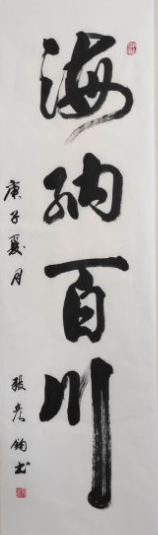 海纳百川
庚子夏月
张彦钧书